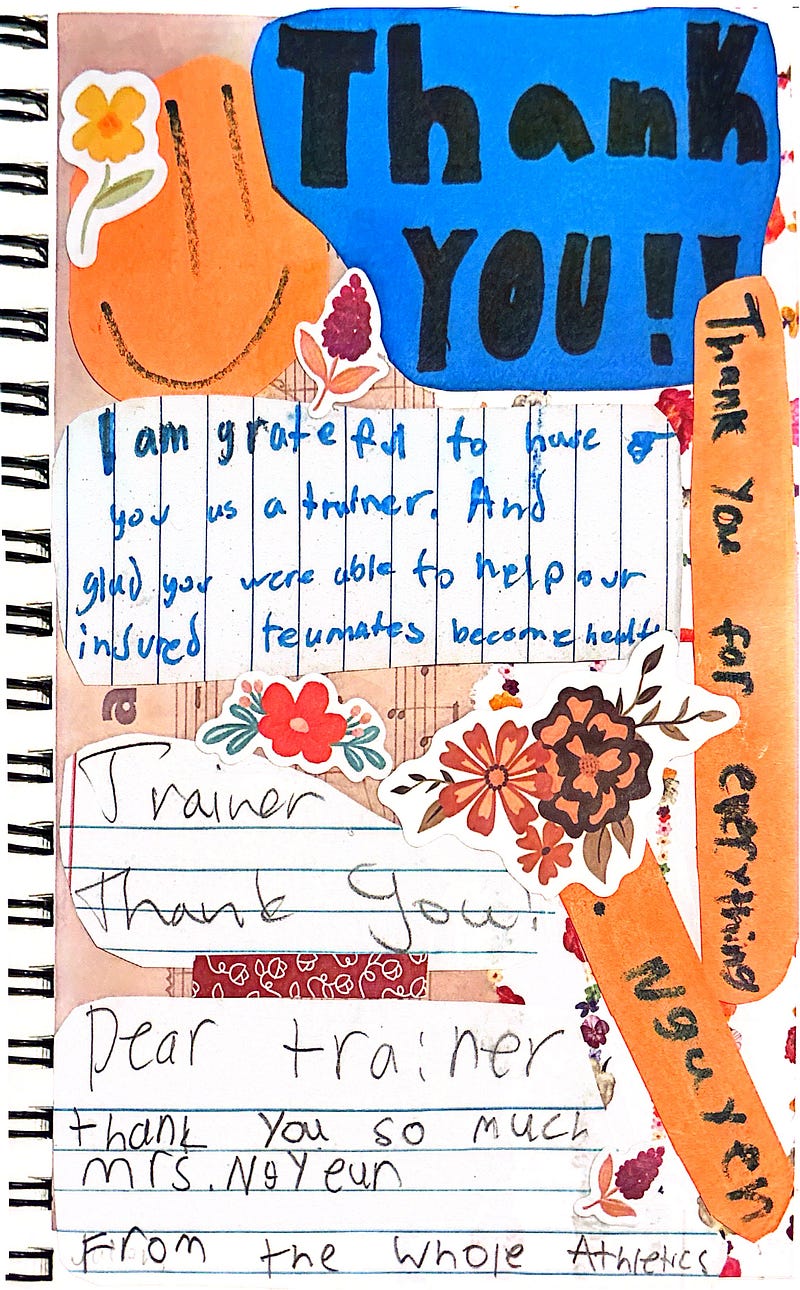 Thank
YOU!!
I am grateful to have
you us a trainer. And
glad you were able to help our
insured teumates become healthy
Trainer
Thank You!
Dear trainer
thank you so much
mrs. NgYeun
From the whole Athletics
Thank You for everything
Nguyen